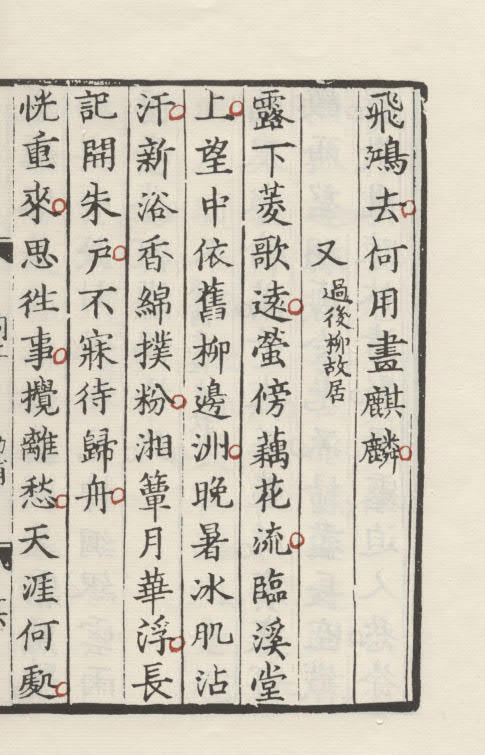 飛鴻去何用畫麒麟
又 過後柳故居
露下菱歌遠螢傍藕花流臨溪堂
上望中依舊柳邊洲晚暑冰肌沾
汗新浴香綿撲粉湘簟月華浮長
記開朱戶不寐待歸舟
恍重來思往事攪離愁天涯何處